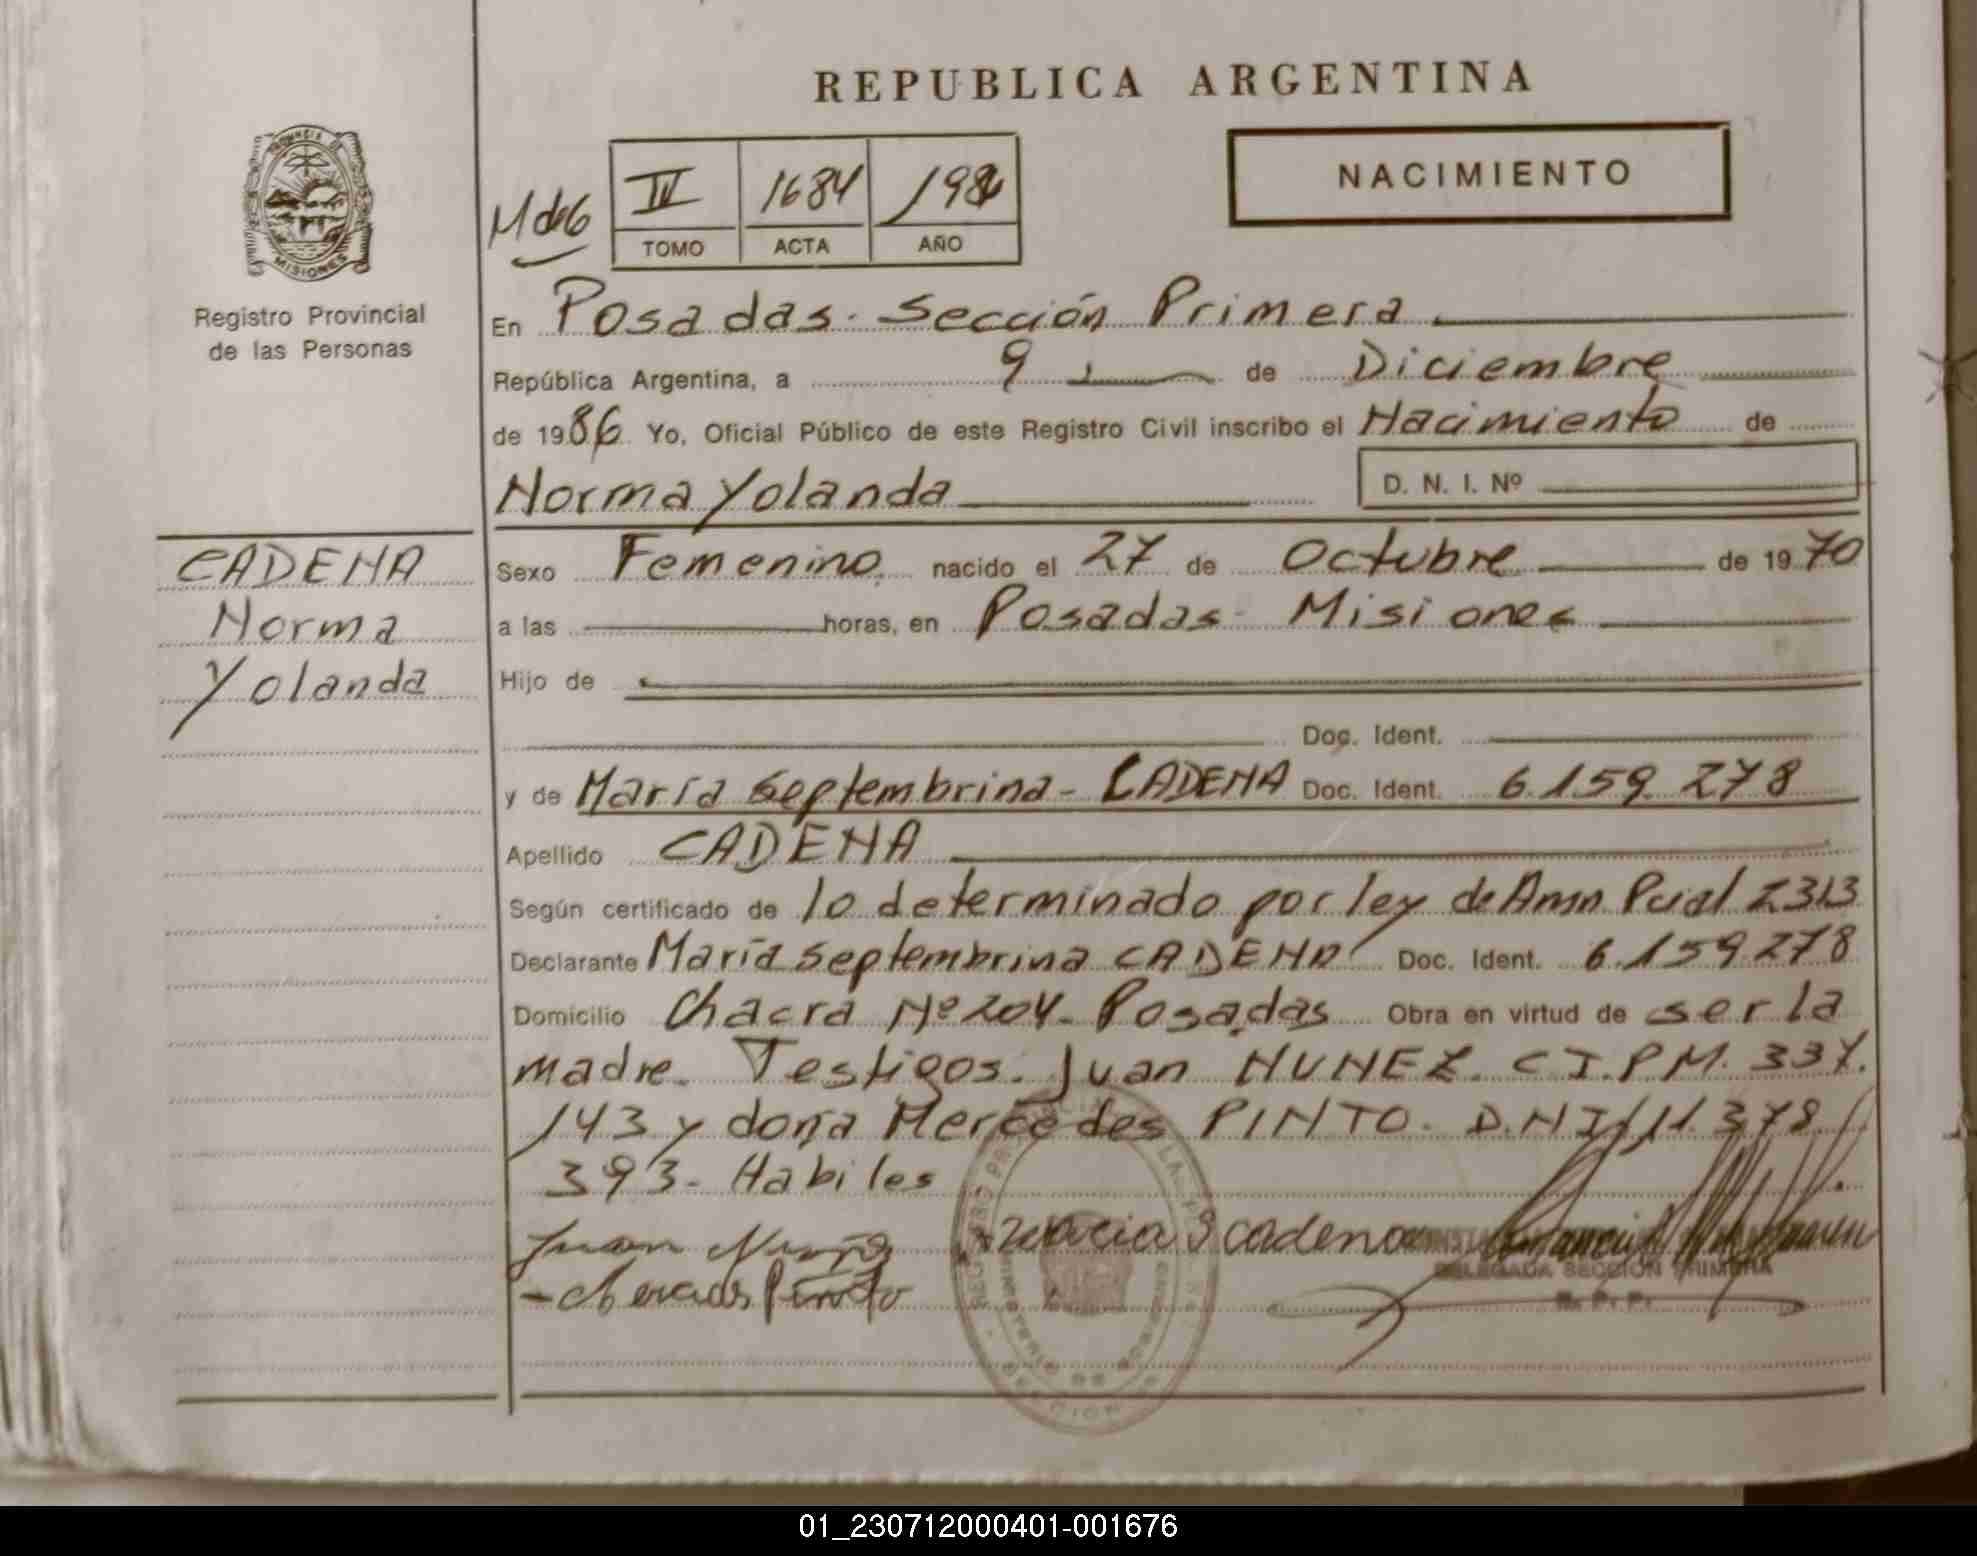 REPUBLICA ARGENTINA
NACIMIENTO
PROVINCIA DE
MISIONES
Registro Provincial
de las Personas
IV 1684 1986
TOMO ACTA AÑO
En Posadas. Sección Primera
República Argentina, a 9 de Diciembre
de 1986 Yo, Oficial Público de este Registro Civil inscribo el Nacimiento de
Norma Yolanda D. N. I. Nº
CADENA
Norma
Yolanda
Sexo Femenino nacido el 27 de Octubre de 1970
a las horas, en Posadas - Misiones
Hijo de
Doc. Ident.
y de María Septembrina - CADENA Doc. Ident. 6.159.278
Apellido CADENA
Según certificado de lo determinado por ley de Amn. Pcial 2313
Declarante María Septembrina CADENA Doc. Ident. 6.159.278
Domicilio Chacra Nº 204 - Posadas Obra en virtud de ser la
madre. Testigos. Juan NUNEZ. C.I.P.M. 337.
143 y doña Mercedes PINTO. D.N.I. 11.378
393 - Habiles
Juan S cadena
Pinto
DELEGADA SECCION PRIMERA
R. P. P.
01_230712000401-001676